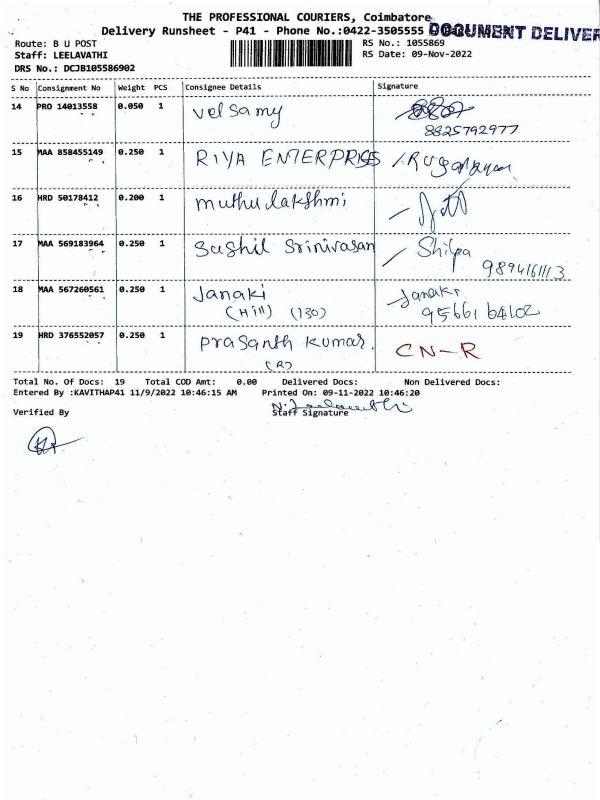 THE PROFESSIONAL COURIERS, Coimbatore
Delivery Runsheet - P41 - Phone No.:0422-3505555
DOCUMENT DELIVER
Route: B U POST
RS No.: 1055869
Staff: LEELAVATHI
RS Date: 09-Nov-2022
DRS No.: DCJB105586902
S No Consignment No Weight PCS Consignee Details Signature
14 PRO 14013558 0.050 1 velsamy
8825792977
15 MAA 858455149 0.250 1 RIYA ENTERPRISES
16 HRD 50178412 0.200 1 muthulakshmi
17 MAA 569183964 0.250 1 Sushil Srinivasan Shilpa
9894161113
18 MAA 567260561 0.250 1 Janaki Janaki
(Hill) (130) 9566164102
19 HRD 376552057 0.250 1 prasanth kumar. CN-R
(R)
Total No. Of Docs: 19 Total COD Amt: 0.00 Delivered Docs: Non Delivered Docs:
Entered By :KAVITHAP41 11/9/2022 10:46:15 AM Printed On: 09-11-2022 10:46:20
Verified By Staff Signature